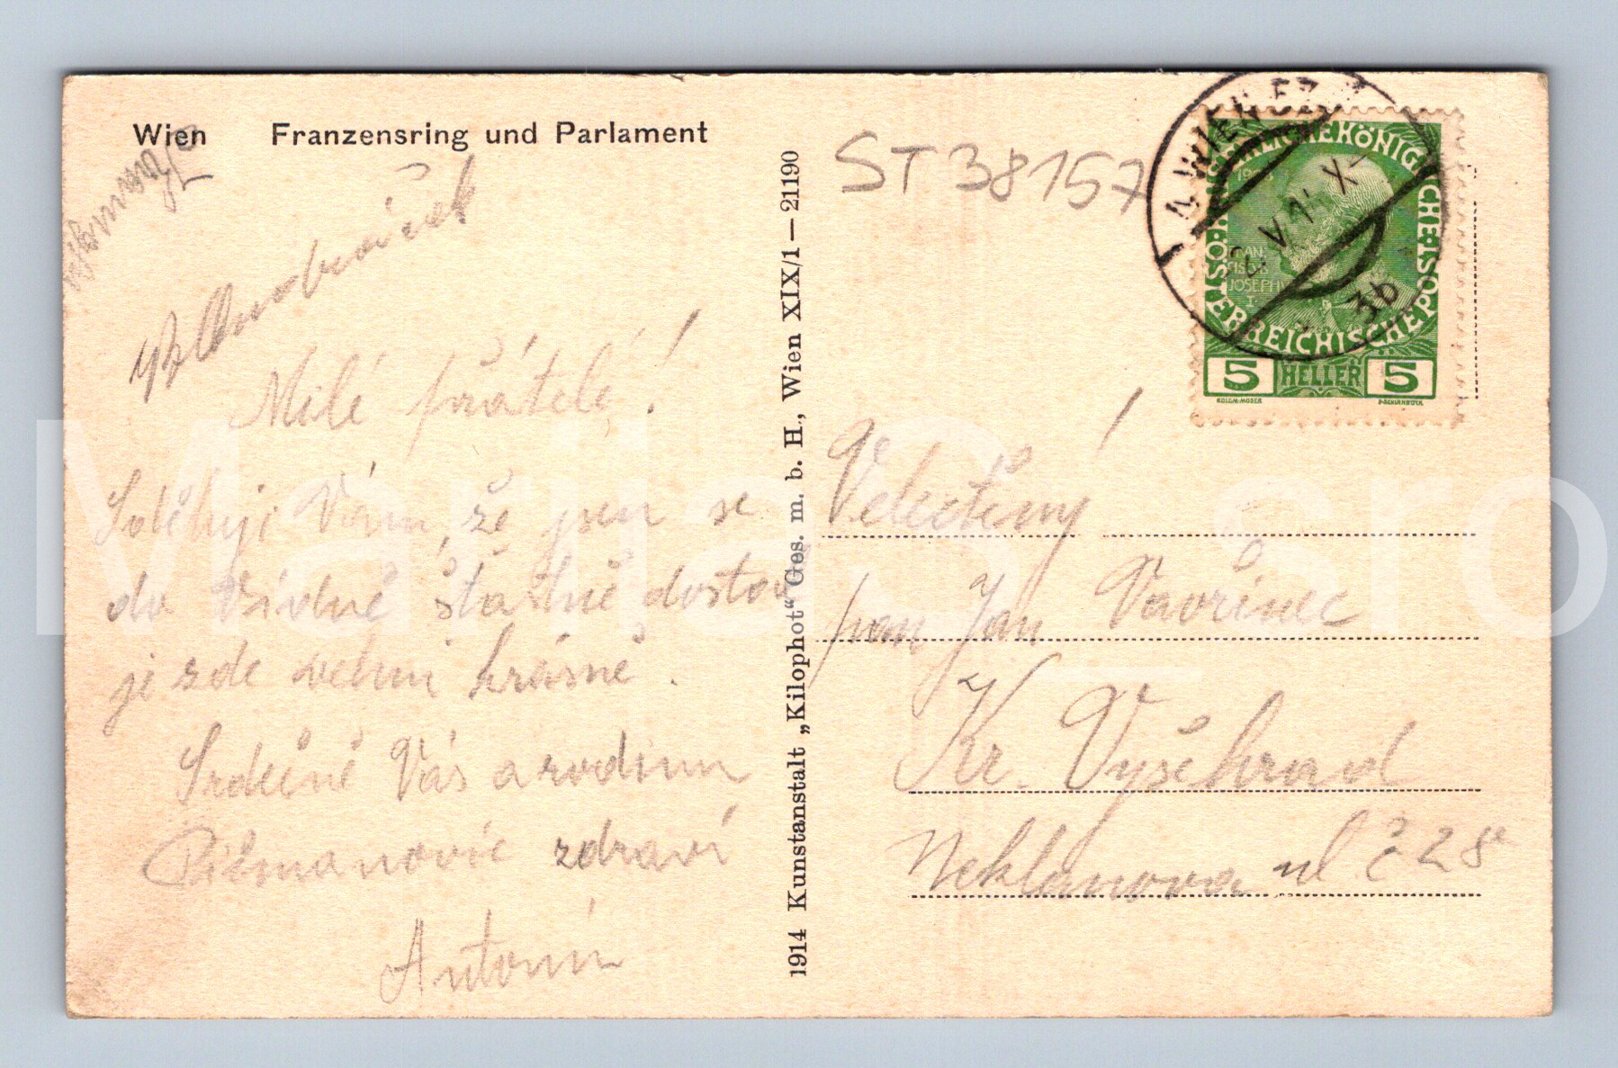 Wien Franzensring und Parlament
Milé přátelé!
Sděluji Vám, že jsem se
do Vídně šťastně dostav
je zde velmi krásně.
Srdečně Vás a rodinu
zdraví
Antonín
1914 Kunstanstalt „Kilophot“ Ges. m. b. H., Wien XIX/1 — 21190
ST 38157
WIEN
V 14 X
3b
KAISERLICHE KÖNIGLICHE ÖSTERREICHISCHE POST
FRANZ JOSEPH I
5 HELLER 5
Velectěný
pan Jan Vavřinec
Kr. Vyšehrad
Neklanova ul č 28